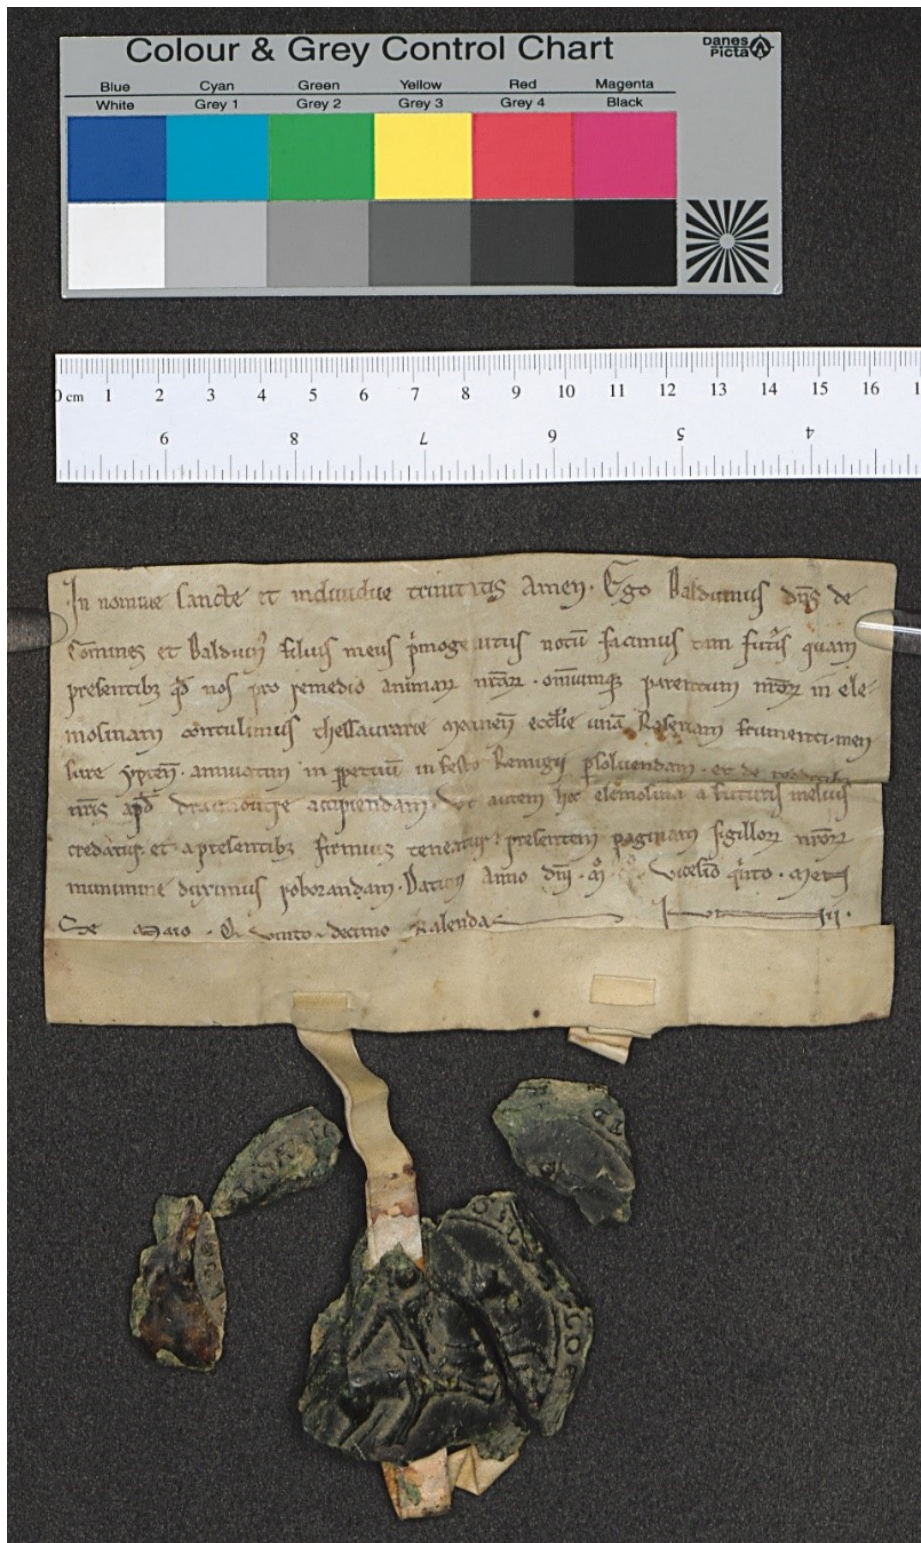 Colour & Grey Control Chart
Danes Picta
Blue Cyan Green Yellow Red Magenta
White Grey 1 Grey 2 Grey 3 Grey 4 Black
0 cm 1 2 3 4 5 6 7 8 9 10 11 12 13 14 15 16 1
9 8 7 6 5 4
In nomine sancte et individue trinitatis Amen. Ego Balduinus dn̄s de
Cōmines et Balduin⁹ filius meus p̍mogenitus notū facimus tam fut̍is quam
presentibꝫ qd̄ nos pro remedio animaꝝ nr̄aꝝ . omniumqꝫ parentum nr̄oꝝ in ele-
mosinam contulimus thessaurarie eccl̄ie unā Raseriam frumenti . men
sure ypren̄ . annuatim in ꝑpetuū in festo Remigii ꝑsoluendam . et de
nr̄is apd̄ accipiendam . Ut autem hec elemosina a futuris melius
credatur . et a presentibꝫ firmius teneatur . presentem paginam sigilloꝝ nr̄oꝝ
munimine duximus roborandam . Datum Anno dn̄i . mͦ . vicesīo q̍nto . Mense
Maio . Quinto . decimo Kalendas